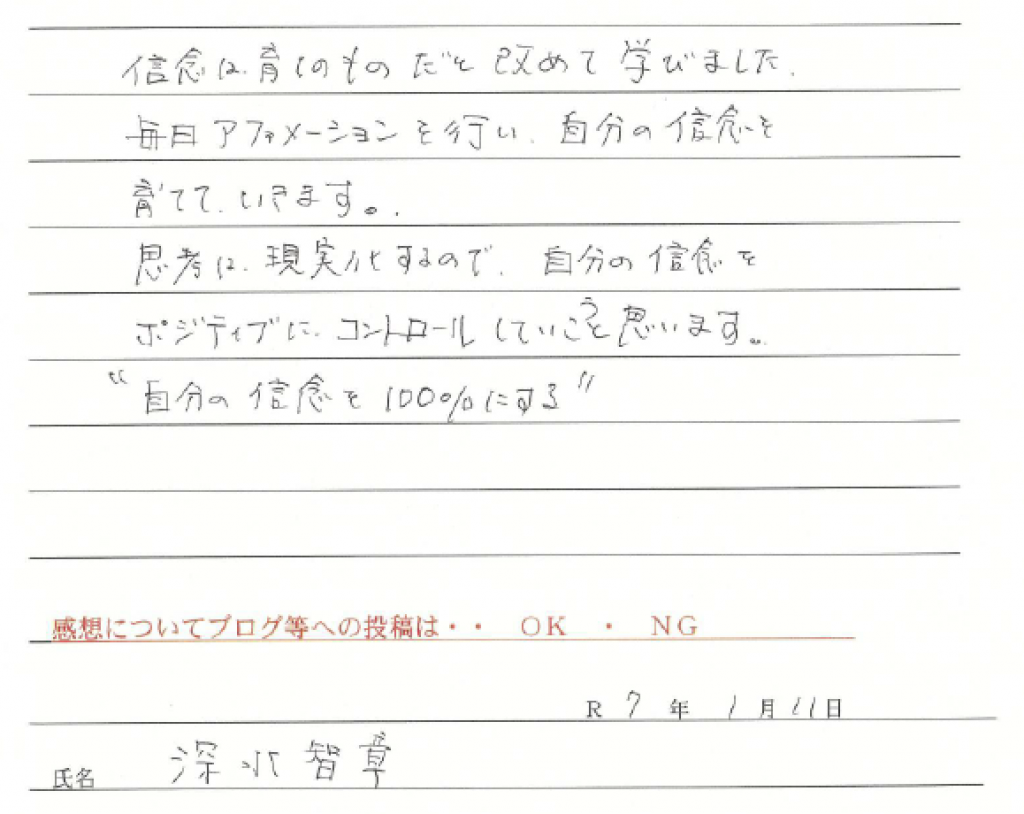 信念は、育しのものだと改めて学びました。
毎日アファメーションを行い、自分の信念を
育てて、いきます。
思考は、現実化するので、自分の信念を
ポジティブに、コントロールしていこうと思います。
“自分の信念を100%にする”
感想についてブログ等への投稿は・・ OK ・ NG
R 7 年 1 月 11 日
氏名 深水智章